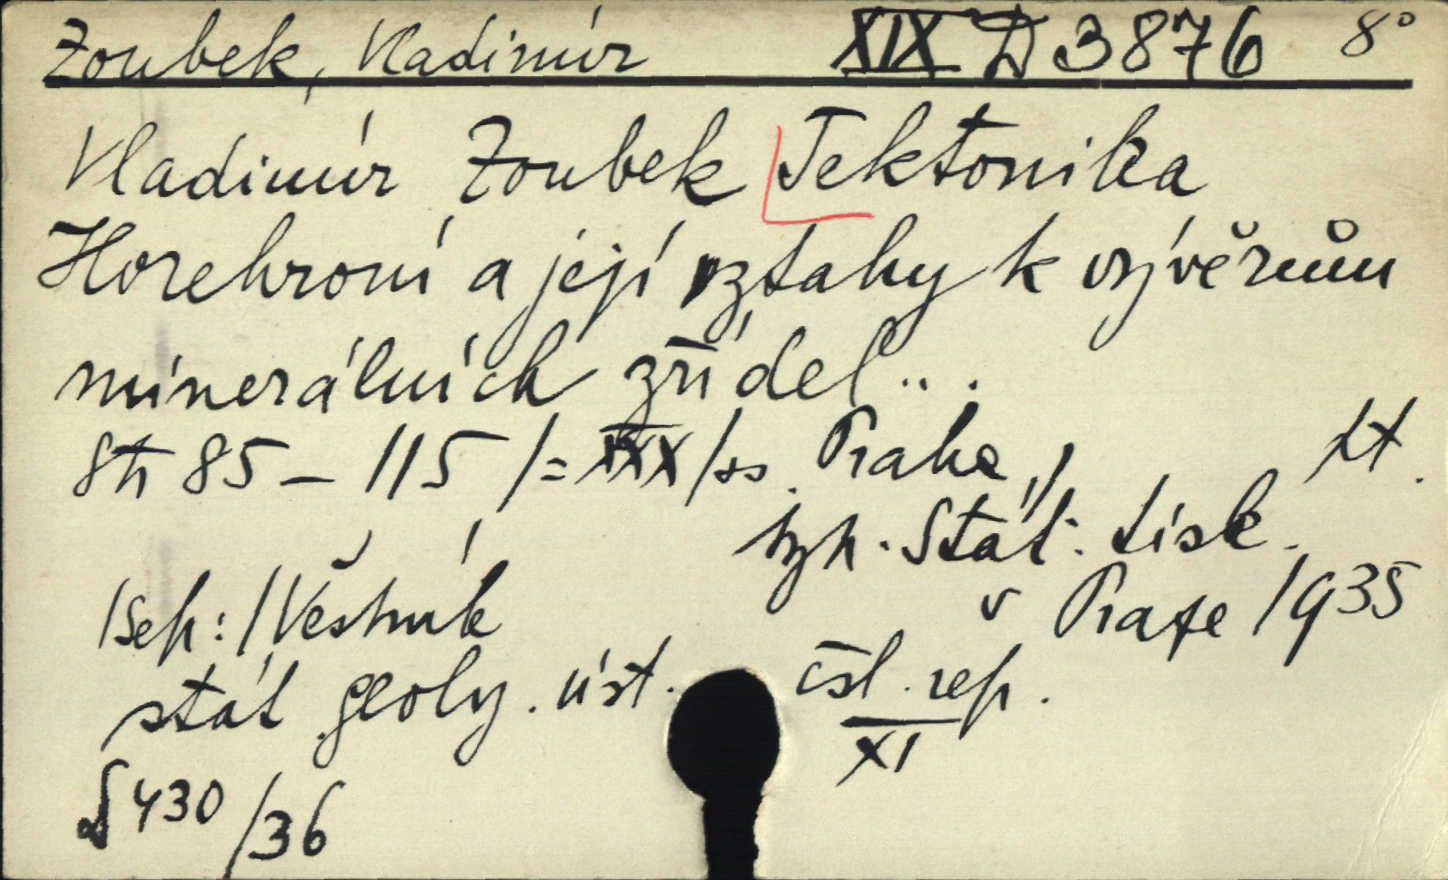 Zoubek, Vladimír XIX D 3876 8°
Vladimír Zoubek Tektonika
Horehroní a její vztahy k vývěrům
minerálních zřídel...
Str 85 - 115 /= XXX/ Praha,
tt.
Stát. tisk.
v Praze 1935
/Sep:/ Věstník
stát geolog. úst. čsl. rep.
XI
430/36